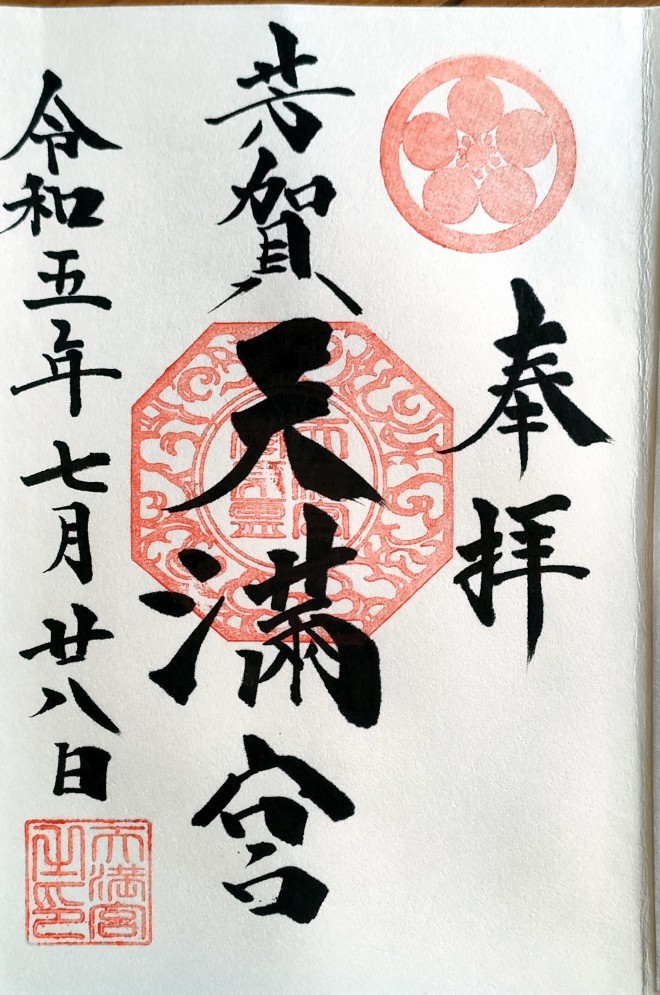 奉拝
芳賀天満宮
令和五年七月廿八日
天満宮
之印